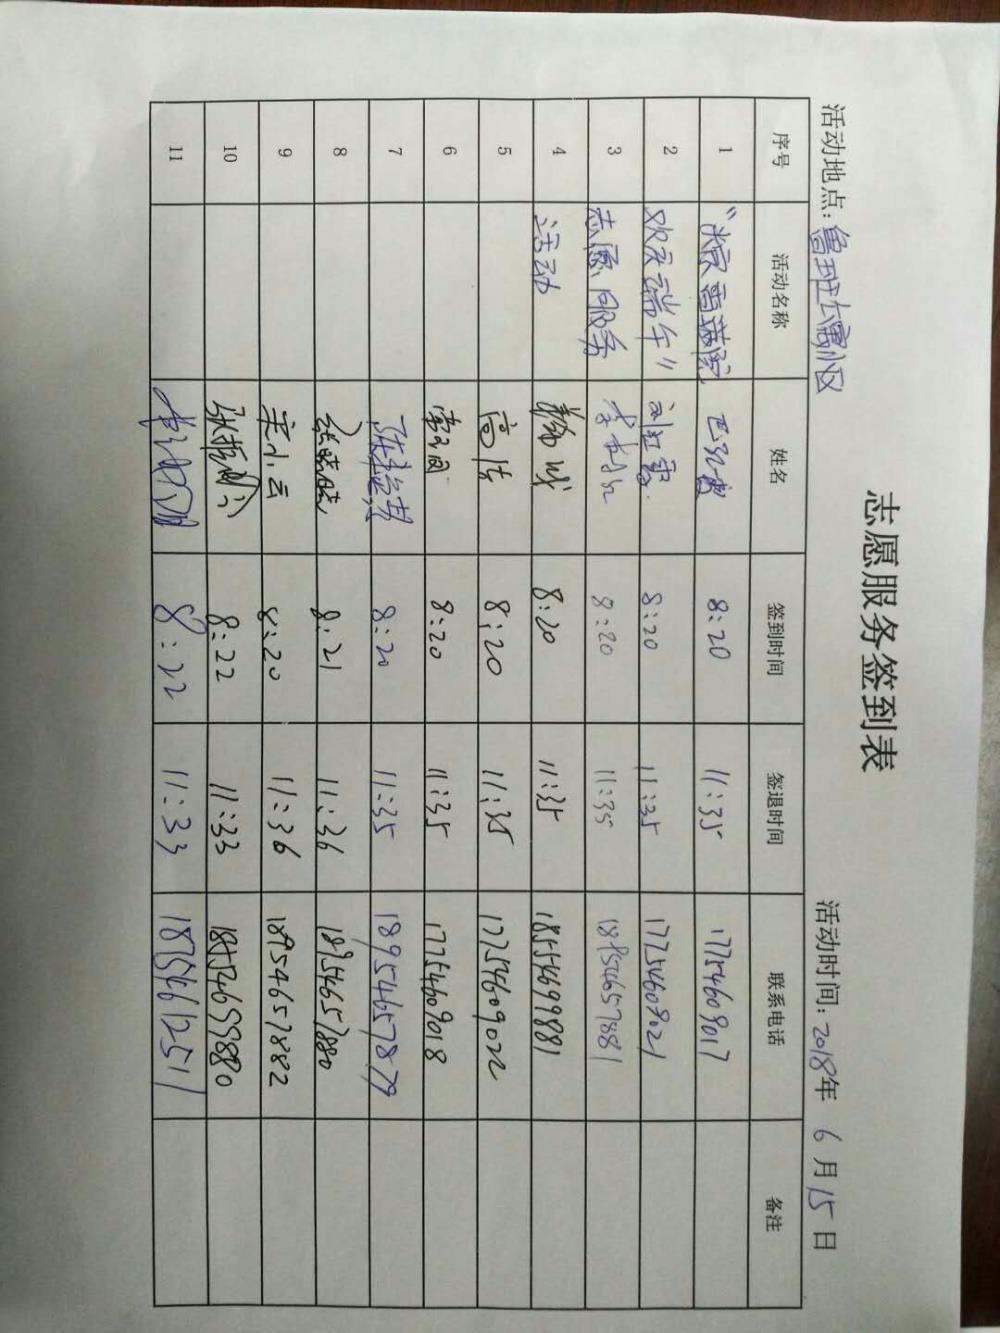 志愿服务签到表
活动地点：鲁班公寓小区 活动时间：2018年 6月15日
序号 活动名称 姓名 签到时间 签退时间 联系电话 备注
1 8:20 11:35 17754609017
2 欢庆端午" 刘红霞 8:20 11:35 17754609021
3 志愿服务 8:20 11:35 18954657881
4 活动 8:20 11:35 18554699881
5 高洁 8:20 11:35 17754609022
6 8:20 11:35 17754609018
7 8:20 11:35 18954657879
8 张晓晓 8:21 11:36 18954657880
9 宋小云 8:20 11:36 18954657882
10 8:22 11:33 18554699880
11 8:22 11:33 18754612511